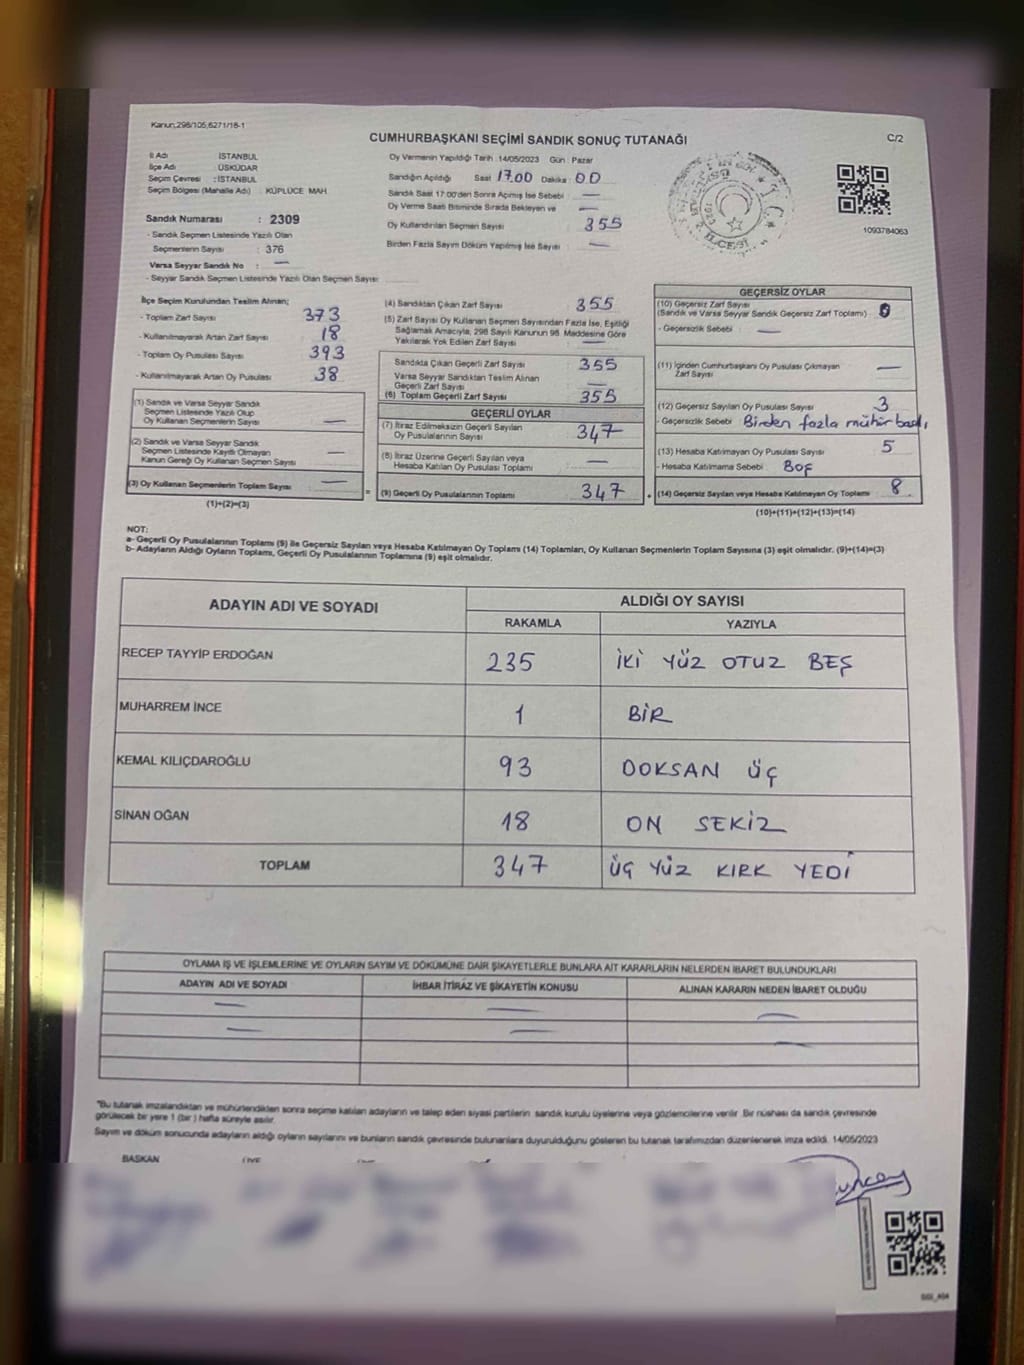 Kanun;298/105,6271/18-1
CUMHURBAŞKANI SEÇİMİ SANDIK SONUÇ TUTANAĞI
C/2
İl Adı İSTANBUL
İlçe Adı : ÜSKÜDAR
Seçim Çevresi : İSTANBUL
Seçim Bölgesi (Mahalle Adı) : KÜPLÜCE MAH.
Sandık Numarası : 2309
- Sandık Seçmen Listesinde Yazılı Olan
Seçmenlerin Sayısı : 376
Varsa Seyyar Sandık No : —
- Seyyar Sandık Seçmen Listesinde Yazılı Olan Seçmen Sayısı :
Oy Vermenin Yapıldığı Tarih :14/05/2023 Gün : Pazar
Sandığın Açıldığı Saat :17.00 Dakika : 00
Sandık Saat 17:00'den Sonra Açılmış İse Sebebi : —
Oy Verme Saati Bitiminde Sırada Bekleyen ve : —
Oy Kullandırılan Seçmen Sayısı : 355
Birden Fazla Sayım Döküm Yapılmış İse Sayısı : —
1093784063
İlçe Seçim Kurulundan Teslim Alınan;
- Toplam Zarf Sayısı : 373
- Kullanılmayarak Artan Zarf Sayısı : 18
- Toplam Oy Pusulası Sayısı : 393
- Kullanılmayarak Artan Oy Pusulası : 38
(1) Sandık ve Varsa Seyyar Sandık
Seçmen Listesinde Yazılı Olup
Oy Kullanan Seçmenlerin Sayısı : —
(2) Sandık ve Varsa Seyyar Sandık
Seçmen Listesinde Kayıtlı Olmayan
Kanun Gereği Oy Kullanan Seçmen Sayısı : —
(3) Oy Kullanan Seçmenlerin Toplam Sayısı : —
(1)+(2)=(3)
(4) Sandıktan Çıkan Zarf Sayısı : 355
(5) Zarf Sayısı Oy Kullanan Seçmen Sayısından Fazla İse, Eşitliği
Sağlamak Amacıyla, 298 Sayılı Kanunun 98. Maddesine Göre
Yakılarak Yok Edilen Zarf Sayısı : —
Sandıkta Çıkan Geçerli Zarf Sayısı : 355
Varsa Seyyar Sandıktan Teslim Alınan
Geçerli Zarf Sayısı : —
(6) Toplam Geçerli Zarf Sayısı : 355
GEÇERLİ OYLAR
(7) İtiraz Edilmeksizin Geçerli Sayılan
Oy Pusulalarının Sayısı : 347
(8) İtiraz Üzerine Geçerli Sayılan veya
Hesaba Katılan Oy Pusulası Toplamı : —
= (9) Geçerli Oy Pusulalarının Toplamı : 347
GEÇERSİZ OYLAR
(10) Geçersiz Zarf Sayısı
(Sandık ve Varsa Seyyar Sandık Geçersiz Zarf Toplamı) : 0
- Geçersizlik Sebebi : —
(11) İçinden Cumhurbaşkanı Oy Pusulası Çıkmayan
Zarf Sayısı : —
(12) Geçersiz Sayılan Oy Pusulası Sayısı : 3
- Geçersizlik Sebebi : Birden fazla mühür
(13) Hesaba Katılmayan Oy Pusulası Sayısı : 5
- Hesaba Katılmama Sebebi : Boş
+ (14) Geçersiz Sayılan veya Hesaba Katılmayan Oy Toplamı : 8
(10)+(11)+(12)+(13)=(14)
NOT:
a- Geçerli Oy Pusulalarının Toplamı (9) ile Geçersiz Sayılan veya Hesaba Katılmayan Oy Toplamı (14) Toplamları, Oy Kullanan Seçmenlerin Toplam Sayısına (3) eşit olmalıdır. (9)+(14)=(3)
b- Adayların Aldığı Oyların Toplamı, Geçerli Oy Pusulalarının Toplamına (9) eşit olmalıdır.
ADAYIN ADI VE SOYADI ALDIĞI OY SAYISI
RAKAMLA YAZIYLA
RECEP TAYYİP ERDOĞAN 235 İKİ YÜZ OTUZ BEŞ
MUHARREM İNCE 1 BİR
KEMAL KILIÇDAROĞLU 93 DOKSAN ÜÇ
SİNAN OĞAN 18 ON SEKİZ
TOPLAM 347 ÜÇ YÜZ KIRK YEDİ
OYLAMA İŞ VE İŞLEMLERİNE VE OYLARIN SAYIM VE DÖKÜMÜNE DAİR ŞİKAYETLERLE BUNLARA AİT KARARLARIN NELERDEN İBARET BULUNDUKLARI
ADAYIN ADI VE SOYADI İHBAR İTİRAZ VE ŞİKAYETİN KONUSU ALINAN KARARIN NEDEN İBARET OLDUĞU
— — —
— — —
"Bu tutanak imzalandıktan ve mühürlendikten sonra seçime katılan adayların ve talep eden siyasi partilerin sandık kurulu üyelerine veya gözlemcilerine verilir. Bir nüshası da sandık çevresinde
görülecek bir yere 1 (bir) hafta süreyle asılır.
Sayım ve döküm sonucunda adayların aldığı oyların sayılarını ve bunların sandık çevresinde bulunanlara duyurulduğunu gösteren bu tutanak tarafımızdan düzenlenerek imza edildi. 14/05/2023
BAŞKAN ÜYE